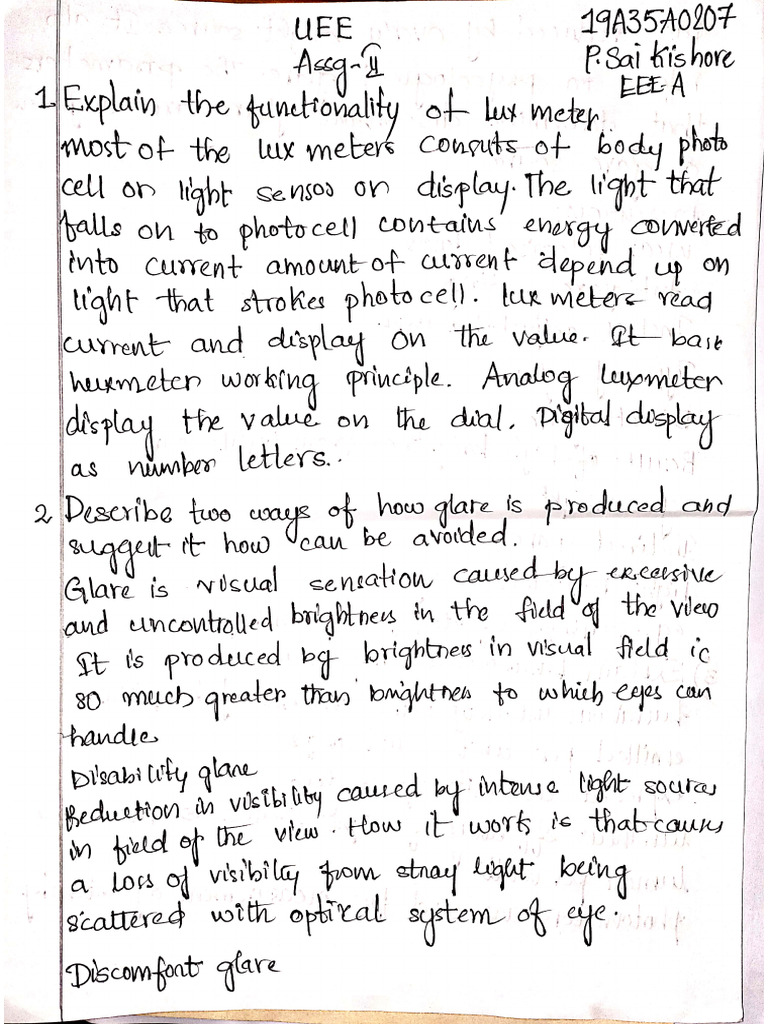 UEE
19A35A0207
Assg-II
P. Sai Kishore
EEE-A
1. Explain the functionality of lux meter.
most of the lux meters consists of body photo
cell or light sensos on display. The light that
falls on to photocell contains energy converted
into current amount of current depend up on
light that strokes photocell. lux meters read
current and display on the value. It base
luxmeter working principle. Analog luxmeter
display the value on the dial. Digital display
as number letlers..
2 Describe two ways of how glare is produced and
suggest it how can be avoided.
Glare is visual sensation caused by excessive
and uncontrolled brightness in the field of the view
It is produced by brightness in visual field is
so much greater than brightness to which eyes can
handle
Disability glare
Reduction in visibility caused by intense light sources
in field of the view. How it work is that causes
a loss of visibilty from stray light being
scattered with optical system of eye.
Discomfort glare